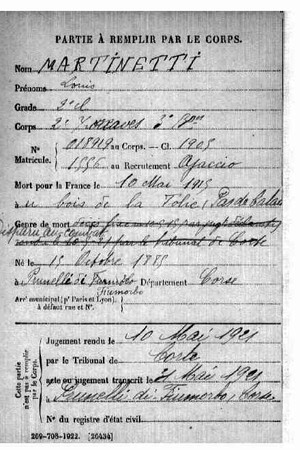 PARTIE À REMPLIR PAR LE CORPS.
Nom MARTINETTI
Prénoms Louis
Grade 2e cl
Corps 2e Zouaves
N° 018919 au Corps. — Cl. 1905
Matricule. 1556 au Recrutement Ajaccio
Mort pour la France le 10 Mai 1915
à u bois de la Folie, Pas de Calais
Genre de mort
Disparu au combat
Né le 15 Octobre 1885
à Prunelli di Fiumorbo Département Corse
Fiumorbo
Arr' municipal (p' Paris et Lyon),
à défaut rue et N°.
Cette partie n'est pas à remplir par le Corps.
Jugement rendu le 10 Mai 1921
par le Tribunal de Corte
acte ou jugement transcrit le 21 Mai 1921
à Prunelli di Fiumorbo, Corse
N° du registre d'état civil
269-708-1922. [26434]